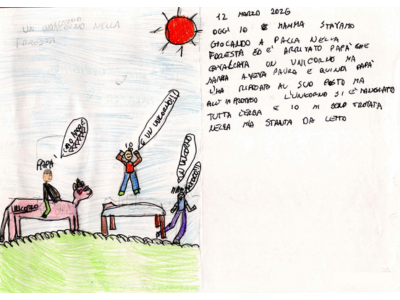 UN UNICORNO NELLA
FORESTA
CIAO
PAPÀ
IO
È UN UNICORNO!!!
UN UNICORNO
UNICORNO
12 MARZO 2026
OGGI IO E MAMMA STAVAMO
GIOCANDO A PALLA NELLA
FORESTA ED E' ARRIVATO PAPA' CHE
CAVALCAVA UN UNICORNO MA
MAMMA AVEVA PAURA E QUINDI PAPA'
L'HA RIPORTATO AL SUO POSTO MA
ALL'IMPROVVISO L'UNICORNO SI E' MANGIATO
TUTTA L'ERBA E IO MI SONO TROVATA
NELLA MIA STANZA DA LETTO